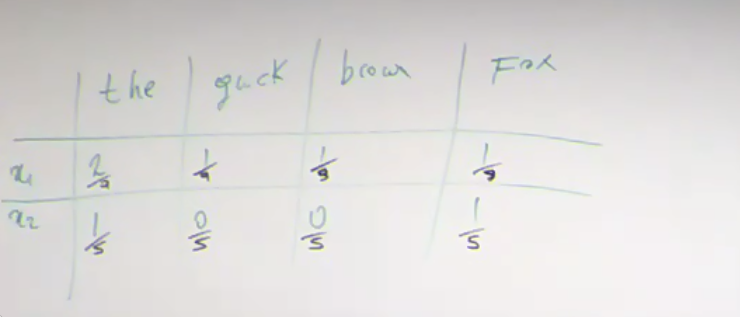 the quck brown Fox
x₁ 2/9 1/9 1/9 1/9
x₂ 1/5 0/5 0/5 1/5